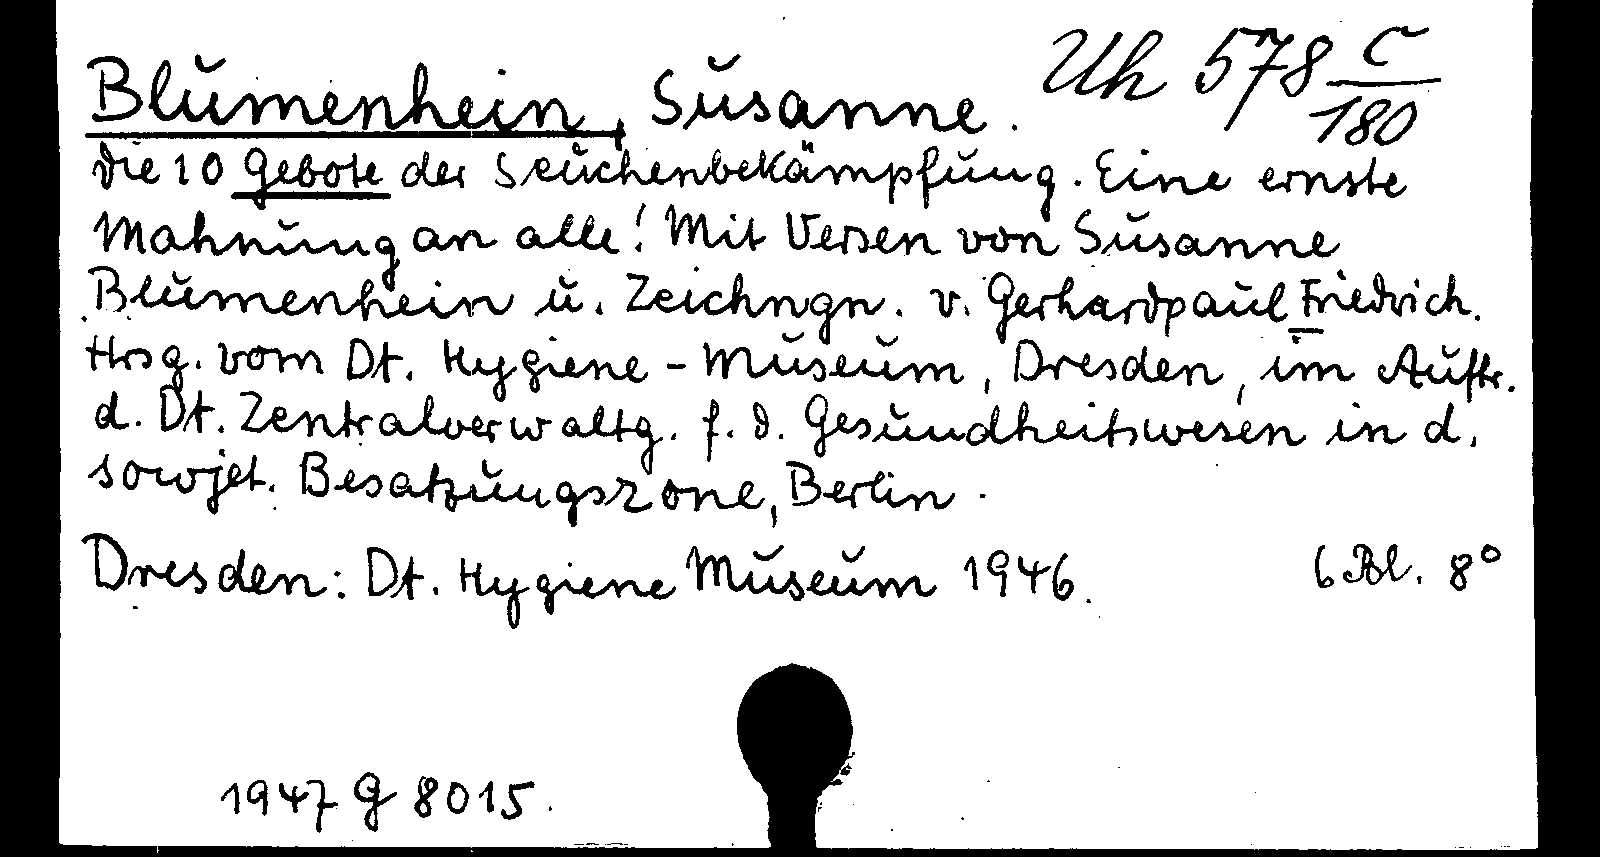 Uh 578 c/180
Blumenhein, Susanne.
Die 10 Gebote der Seuchenbekämpfung. Eine ernste
Mahnung an alle! Mit Versen von Susanne
Blumenhein u. Zeichngn. v. Gerhardpaul Friedrich.
Hrsg. vom Dt. Hygiene-Museum, Dresden, im Auftr.
d. Dt. Zentralverwaltg. f. d. Gesundheitswesen in d.
sowjet. Besatzungszone, Berlin.
Dresden: Dt. Hygiene Museum 1946. 6 Bl. 8°
1947 G 8015.